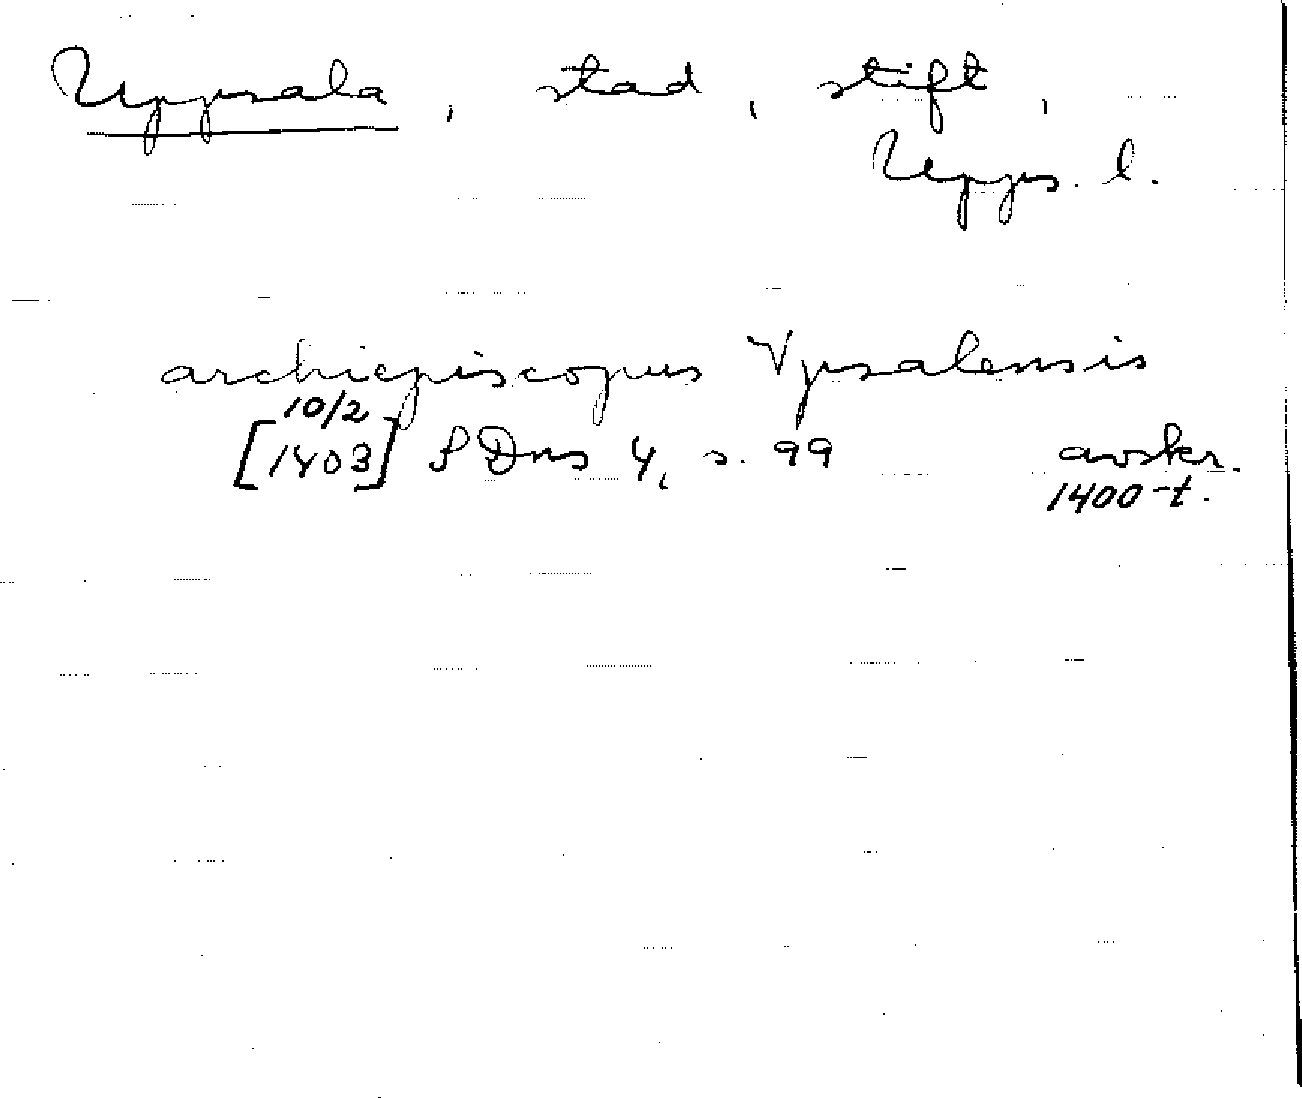 Uppsala, stad, stift,
Upps. l.
archiepiscopus Vpsalensis
10/2
[1403] SDns 4, s. 99 avskr.
1400-t.